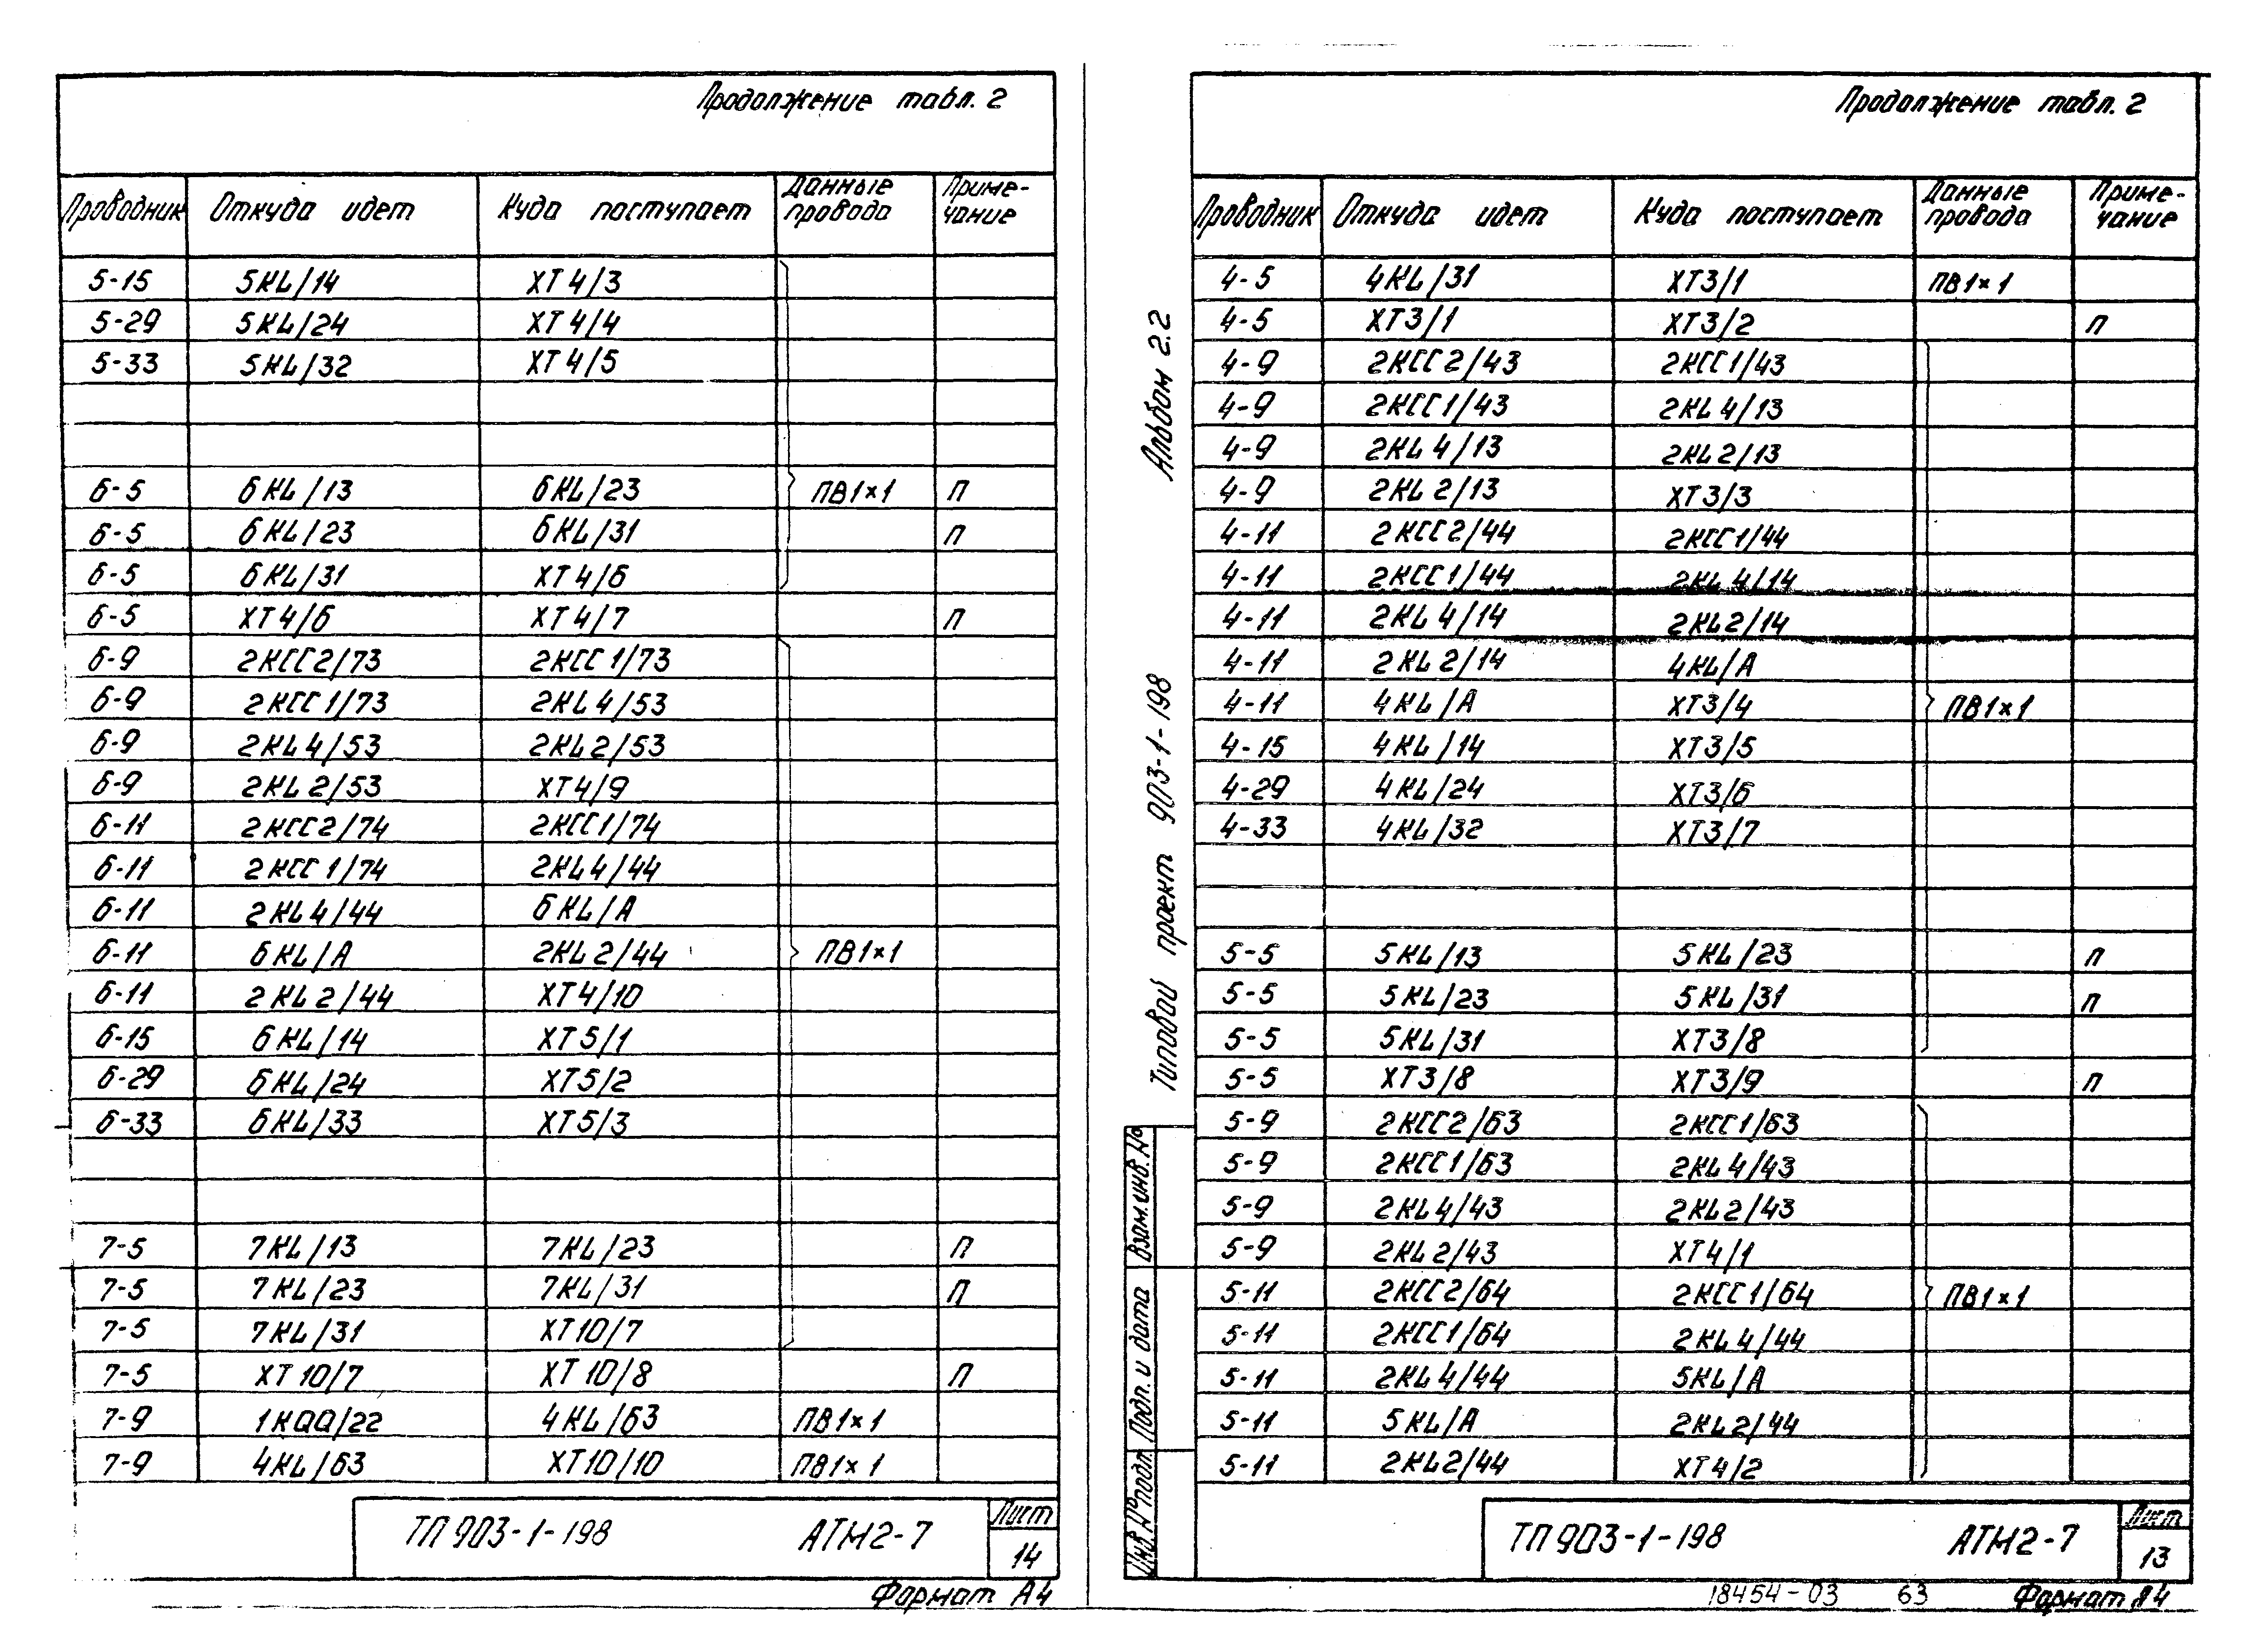 Продолжение табл. 2
Проводник Откуда идет Куда поступает Данные провода Приме-чание
5-15 5KL/14 XT4/3
5-29 5KL/24 XT4/4
5-33 5KL/32 XT4/5
6-5 6KL/13 6KL/23 ПВ1×1 П
6-5 6KL/23 6KL/31 П
6-5 6KL/31 XT4/6
6-5 XT4/6 XT4/7 П
6-9 2КСС2/73 2КСС1/73
6-9 2КСС1/73 2KL4/53
6-9 2KL4/53 2KL2/53
6-9 2KL2/53 XT4/9
6-11 2КСС2/74 2КСС1/74
6-11 2КСС1/74 2KL4/44
6-11 2KL4/44 6KL/A
6-11 6KL/A 2KL2/44 ПВ1×1
6-11 2KL2/44 XT4/10
6-15 6KL/14 XT5/1
6-29 6KL/24 XT5/2
6-33 6KL/33 XT5/3
7-5 7KL/13 7KL/23 П
7-5 7KL/23 7KL/31 П
7-5 7KL/31 XT10/7
7-5 XT10/7 XT10/8 П
7-9 1KQQ/22 4KL/63 ПВ1×1
7-9 4KL/63 XT10/10 ПВ1×1
ТП 903-1-198 АТМ2-7 Лист
14
Формат А4
Продолжение табл. 2
Проводник Откуда идет Куда поступает Данные провода Приме-чание
4-5 4KL/31 XT3/1 ПВ1×1
4-5 XT3/1 XT3/2 П
4-9 2КСС2/43 2КСС1/43
4-9 2КСС1/43 2KL4/13
4-9 2KL4/13 2KL2/13
4-9 2KL2/13 XT3/3
4-11 2КСС2/44 2КСС1/44
4-11 2КСС1/44 2KL4/14
4-11 2KL4/14 2KL2/14
4-11 2KL2/14 4KL/A
4-11 4KL/A XT3/4 ПВ1×1
4-15 4KL/14 XT3/5
4-29 4KL/24 XT3/6
4-33 4KL/32 XT3/7
5-5 5KL/13 5KL/23 П
5-5 5KL/23 5KL/31 П
5-5 5KL/31 XT3/8
5-5 XT3/8 XT3/9 П
5-9 2КСС2/63 2КСС1/63
5-9 2КСС1/63 2KL4/43
5-9 2KL4/43 2KL2/43
5-9 2KL2/43 XT4/1
5-11 2КСС2/64 2КСС1/64 ПВ1×1
5-11 2КСС1/64 2KL4/44
5-11 2KL4/44 5KL/A
5-11 5KL/A 2KL2/44
5-11 2KL2/44 XT4/2
ТП 903-1-198 АТМ2-7 Лист
13
18454-03 63 Формат А4
Типовой проект 903-1-198 Альбом 2.2
Инв.№ подл. Подп. и дата Взам.инв.№